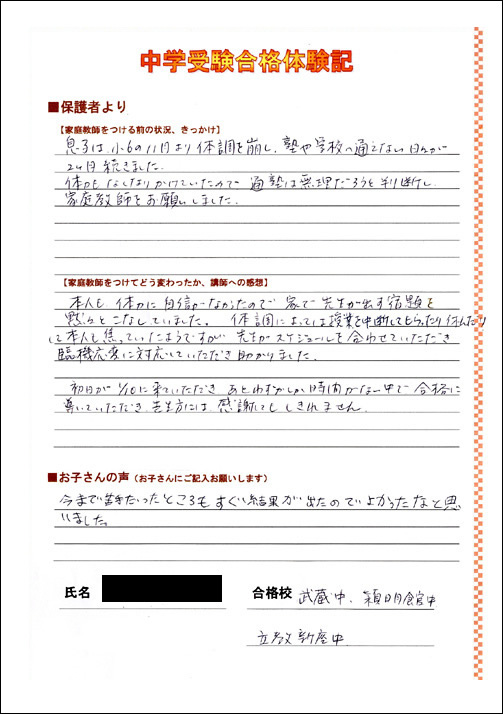 中学受験合格体験記
■保護者より
【家庭教師をつける前の状況、きっかけ】
息子は、小6の11月より体調を崩し、塾や学校へ通えない日々が
2ヶ月続きました。
体力もなくなりかけていたので通塾は無理だろうと判断し、
家庭教師をお願いしました。
【家庭教師をつけてどう変わったか、講師への感想】
本人も体力に自信がなかったので家で先生が出す宿題を
黙々とこなしていました。体調によっては授業を中断してもらったり休んだり
して本人も焦っていたようですが先生がスケジュールを合わせていただき
臨機応変に対応していただき助かりました。
初日が1/10に来ていただきあとわずかしか時間がない中で合格に
導いていただき先生方には、感謝してもしきれません。
■お子さんの声（お子さんにご記入お願いします）
今まで苦手だったところもすぐ結果が出たのでよかったなと思
いました。
氏名
合格校 武蔵中、穎明館中
立教新座中